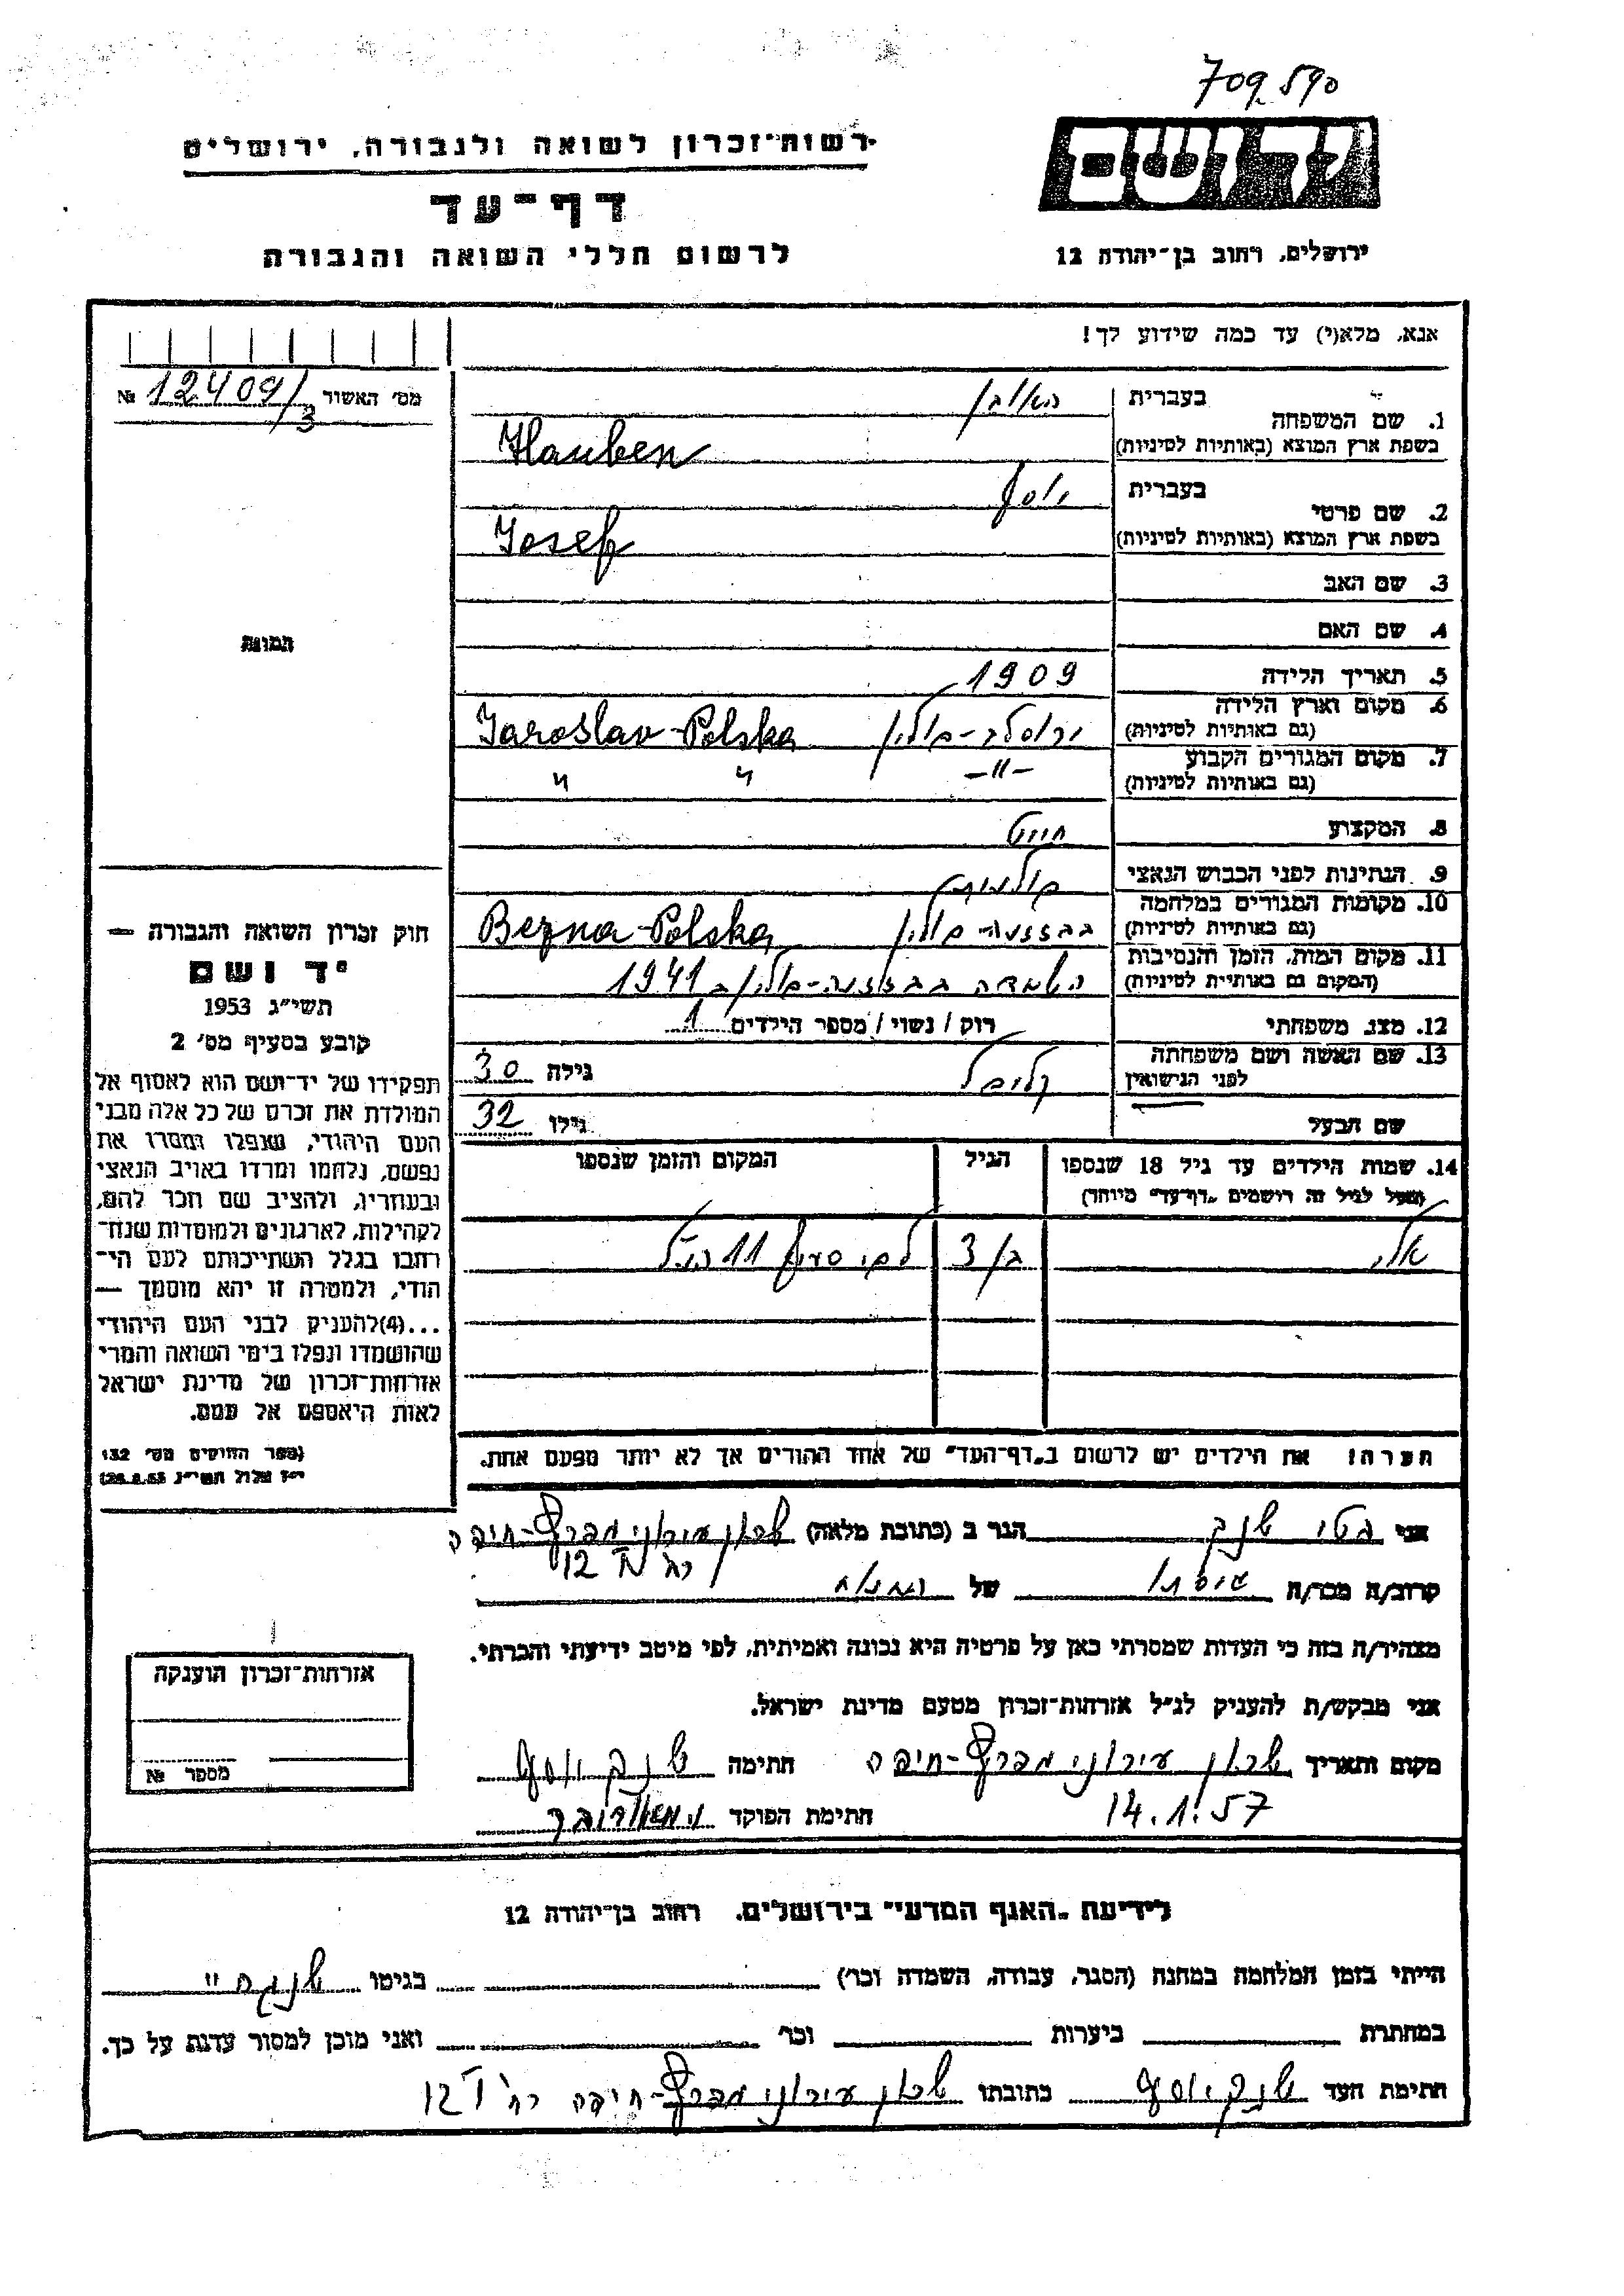 709590
יד ושם
רשות־זכרון לשואה ולגבורה, ירושלים
דף־עד
לרשום חללי השואה והגבורה
ירושלים, רחוב בן־יהודה 12
אנא, מלא(י) עד כמה שידוע לך!
מס׳ האשור 12409/3 №
1. שם המשפחה
בעברית האובן
בשפת ארץ המוצא (באותיות לטיניות) Hauben
2. שם פרטי
בעברית יוסף
בשפת ארץ המוצא (באותיות לטיניות) Josef
3. שם האב
4. שם האם
5. תאריך הלידה 1909
6. מקום וארץ הלידה ירוסלב-פולין Jaroslav-Polska
(גם באותיות לטיניות)
7. מקום המגורים הקבוע -"- " "
(גם באותיות לטיניות)
8. המקצוע חייט
9. הנתינות לפני הכבוש הנאצי פולנית
10. מקומות המגורים במלחמה Bezna-Polska
(גם באותיות לטיניות)
11. מקום המות, הזמן והנסיבות 1941
(המקום גם באותיות לטיניות)
12. מצב משפחתי רווק / נשוי / מספר הילדים 1
13. שם האשה ושם משפחתה
לפני הנישואין גילה 30
שם הבעל גילו 32
14. שמות הילדים עד גיל 18 שנספו הגיל המקום והזמן שנספו
(מעל לגיל זה רושמים „דף־עד" מיוחד)
אלי בן 3 לפי סעיף 11 הנ"ל
הערה: את הילדים יש לרשום ב„דף־העד" של אחד ההורים אך לא יותר מפעם אחת.
תמונה
חוק זכרון השואה והגבורה —
יד ושם
תשי״ג 1953
קובע בסעיף מס׳ 2
תפקידו של יד־ושם הוא לאסוף אל
המולדת את זכרם של כל אלה מבני
העם היהודי, שנפלו ומסרו את
נפשם, נלחמו ומרדו באויב הנאצי
ובעוזריו, ולהציב שם וזכר להם,
לקהילות, לארגונים ולמוסדות שנח־
רבו בגלל השתייכותם לעם הי־
הודי, ולמטרה זו יהא מוסמך —
...(4)להעניק לבני העם היהודי
שהושמדו ונפלו בימי השואה והמרי
אזרחות־זכרון של מדינת ישראל
לאות היאספם אל עמם.
(ספר החוקים מס׳ 132
י״ז אלול תשי״ג 28.8.53)
אני הגר ב (כתובת מלאה) שכון עירוני מפרץ-חיפה
12
קרוב/ה מכר/ה של המנוח
מצהיר/ה בזה כי העדות שמסרתי כאן על פרטיה היא נכונה ואמיתית, לפי מיטב ידיעתי והכרתי.
אני מבקש/ת להעניק לנ״ל אזרחות־זכרון מטעם מדינת ישראל.
מקום ותאריך שכון עירוני מפרץ-חיפה חתימה
14.1.57 חתימת הפוקד
אזרחות־זכרון הוענקה
מספר №
לידיעת „האגף המדעי" בירושלים, רחוב בן־יהודה 12
הייתי בזמן המלחמה במחנה (הסגר, עבודה, השמדה וכו׳) בגיטו
במחתרת ביערות וכו׳ ואני מוכן למסור עדות על כך.
חתימת העד כתובתו שכון עירוני מפרץ-חיפה 12